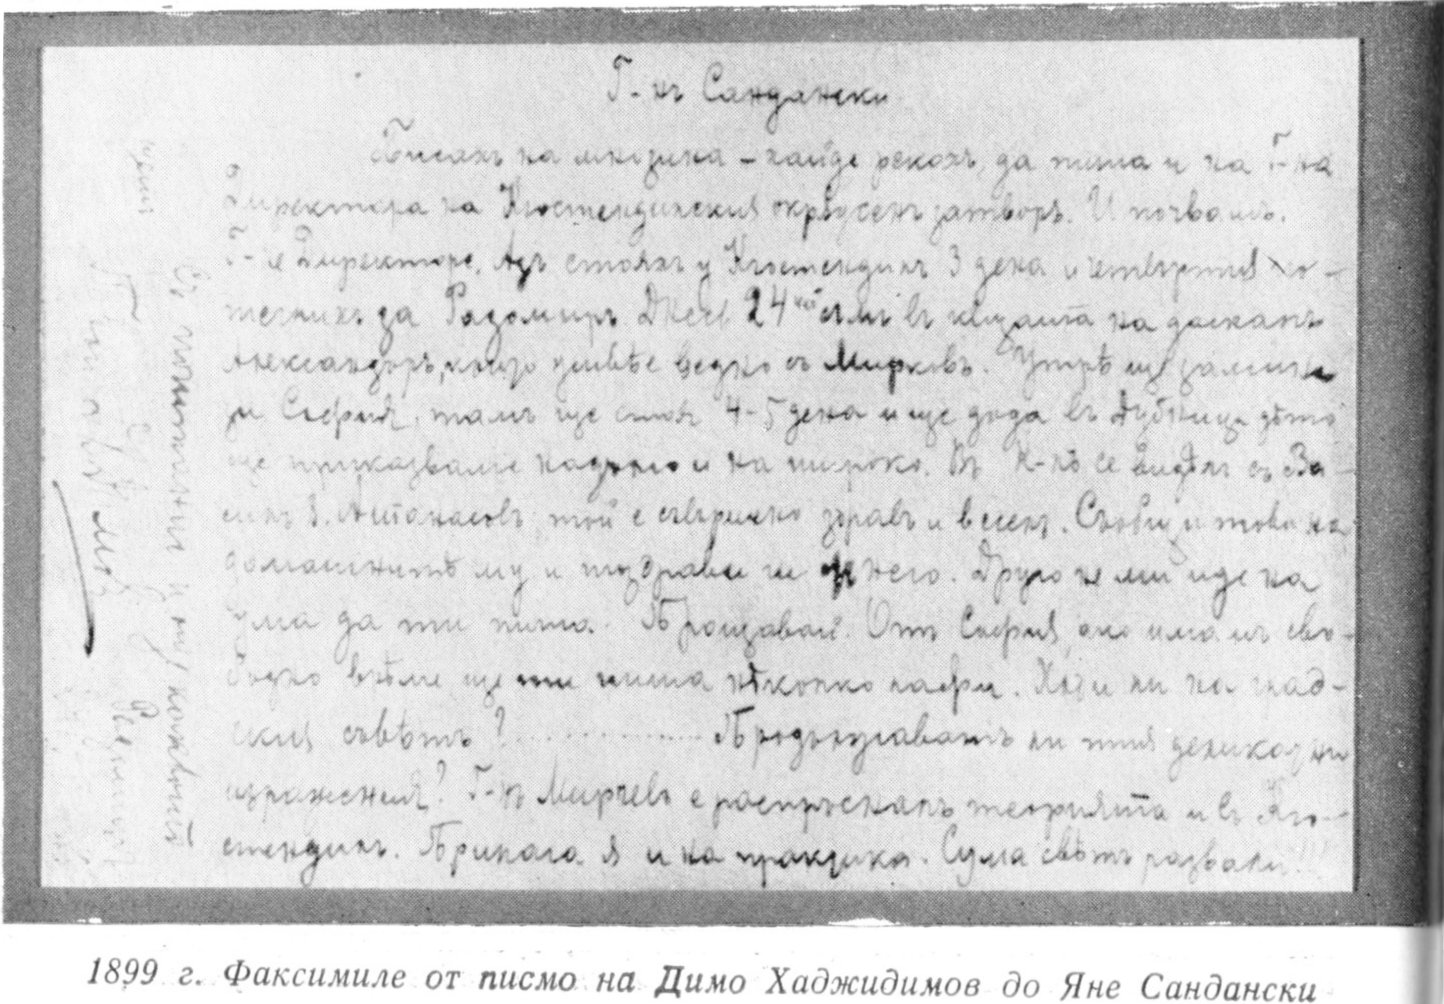 Г-нъ Сандански
Писахъ на мнозина – хайде рекохъ, да пиша и на Г-на
Директора на Кюстендилския окрѫженъ затворъ. И почвамъ.
Г-не Директоре, Азъ стояхъ у Кюстендилъ 3 дена и четвъртия
за Радомиръ. Днесь 24 съмъ въ кѫщата на даскалъ
Александъръ, който живѣе ведно съ Мирковъ. Утрѣ ще замина
за София, тамъ ще стоя 4-5 дена и ще дода въ Дубница дѣто
ще приказваме надълго и на широко. Въ К-лъ се видѣхъ съ Ва-
силъ Атанасовъ, той е съвършено здравъ и веселъ. Съобщи това на
домашнитѣ му и поздрави ги отъ него. Друго не ми иде на
ума да ти пиша. Прощавай. Отъ София, ако имамъ сво-
бодно врѣме ще ти пиша нѣколко лафа. Ходи ли на град-
ския съвѣтъ? .............. Продължаватъ ли тия деликатни
изражения? Г-нъ Мирчевъ е распръсналъ теорията и въ Кю-
стендилъ. Прилага я и на практика. Сума свѣтъ развали!
Съ
1899 г. Факсимиле от писмо на Димо Хаджидимов до Яне Сандански